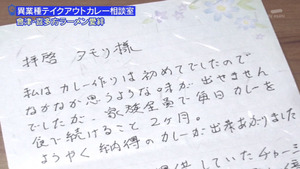 異業種テイクアウトカレー相談室
會津・喜多方ラーメン愛絆
拝啓 タモリ様
私はカレー作りは初めてでしたので
なかなか思うような味が出せません
でしたが、家族全員で毎日カレーを
食べ続けること 2ヶ月。
ようやく納得のカレーが出来あがりました
提供していたチャーシ